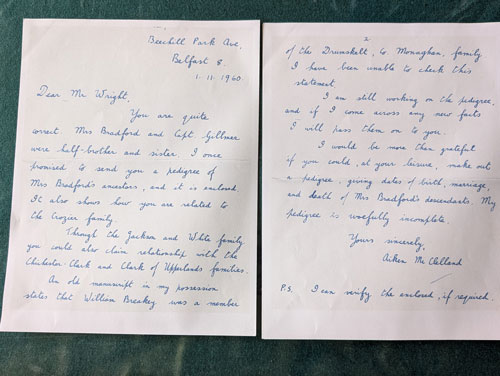 Beechill Park Ave,
Belfast 8.
1.11.1960.
Dear Mr Wright,
You are quite
correct Mrs Bradford and Capt. Gillmer
were half-brother and sister. I once
promised to send you a pedigree of
Mrs Bradford's ancestors, and it is enclosed.
It also shows how you are related to
the Crozier family.
Through the Jackson and White family
you could also claim relationship with the
Chichester-Clark and Clark of Upperlands families.
An old manuscript in my possession
states that William Breakey was a member
2
of the Drumskelt, Co. Monaghan, family
I have been unable to check this
statement.
I am still working on the pedigree,
and if I come across any new facts
I will pass them on to you.
I would be more than grateful
if you could, at your leisure, make out
a pedigree, giving dates of birth, marriage,
and death of Mrs Bradford's descendants. My
pedigree is woefully incomplete.
Yours sincerely,
Aiken McClelland
P.S. I can verify the enclosed, if required.